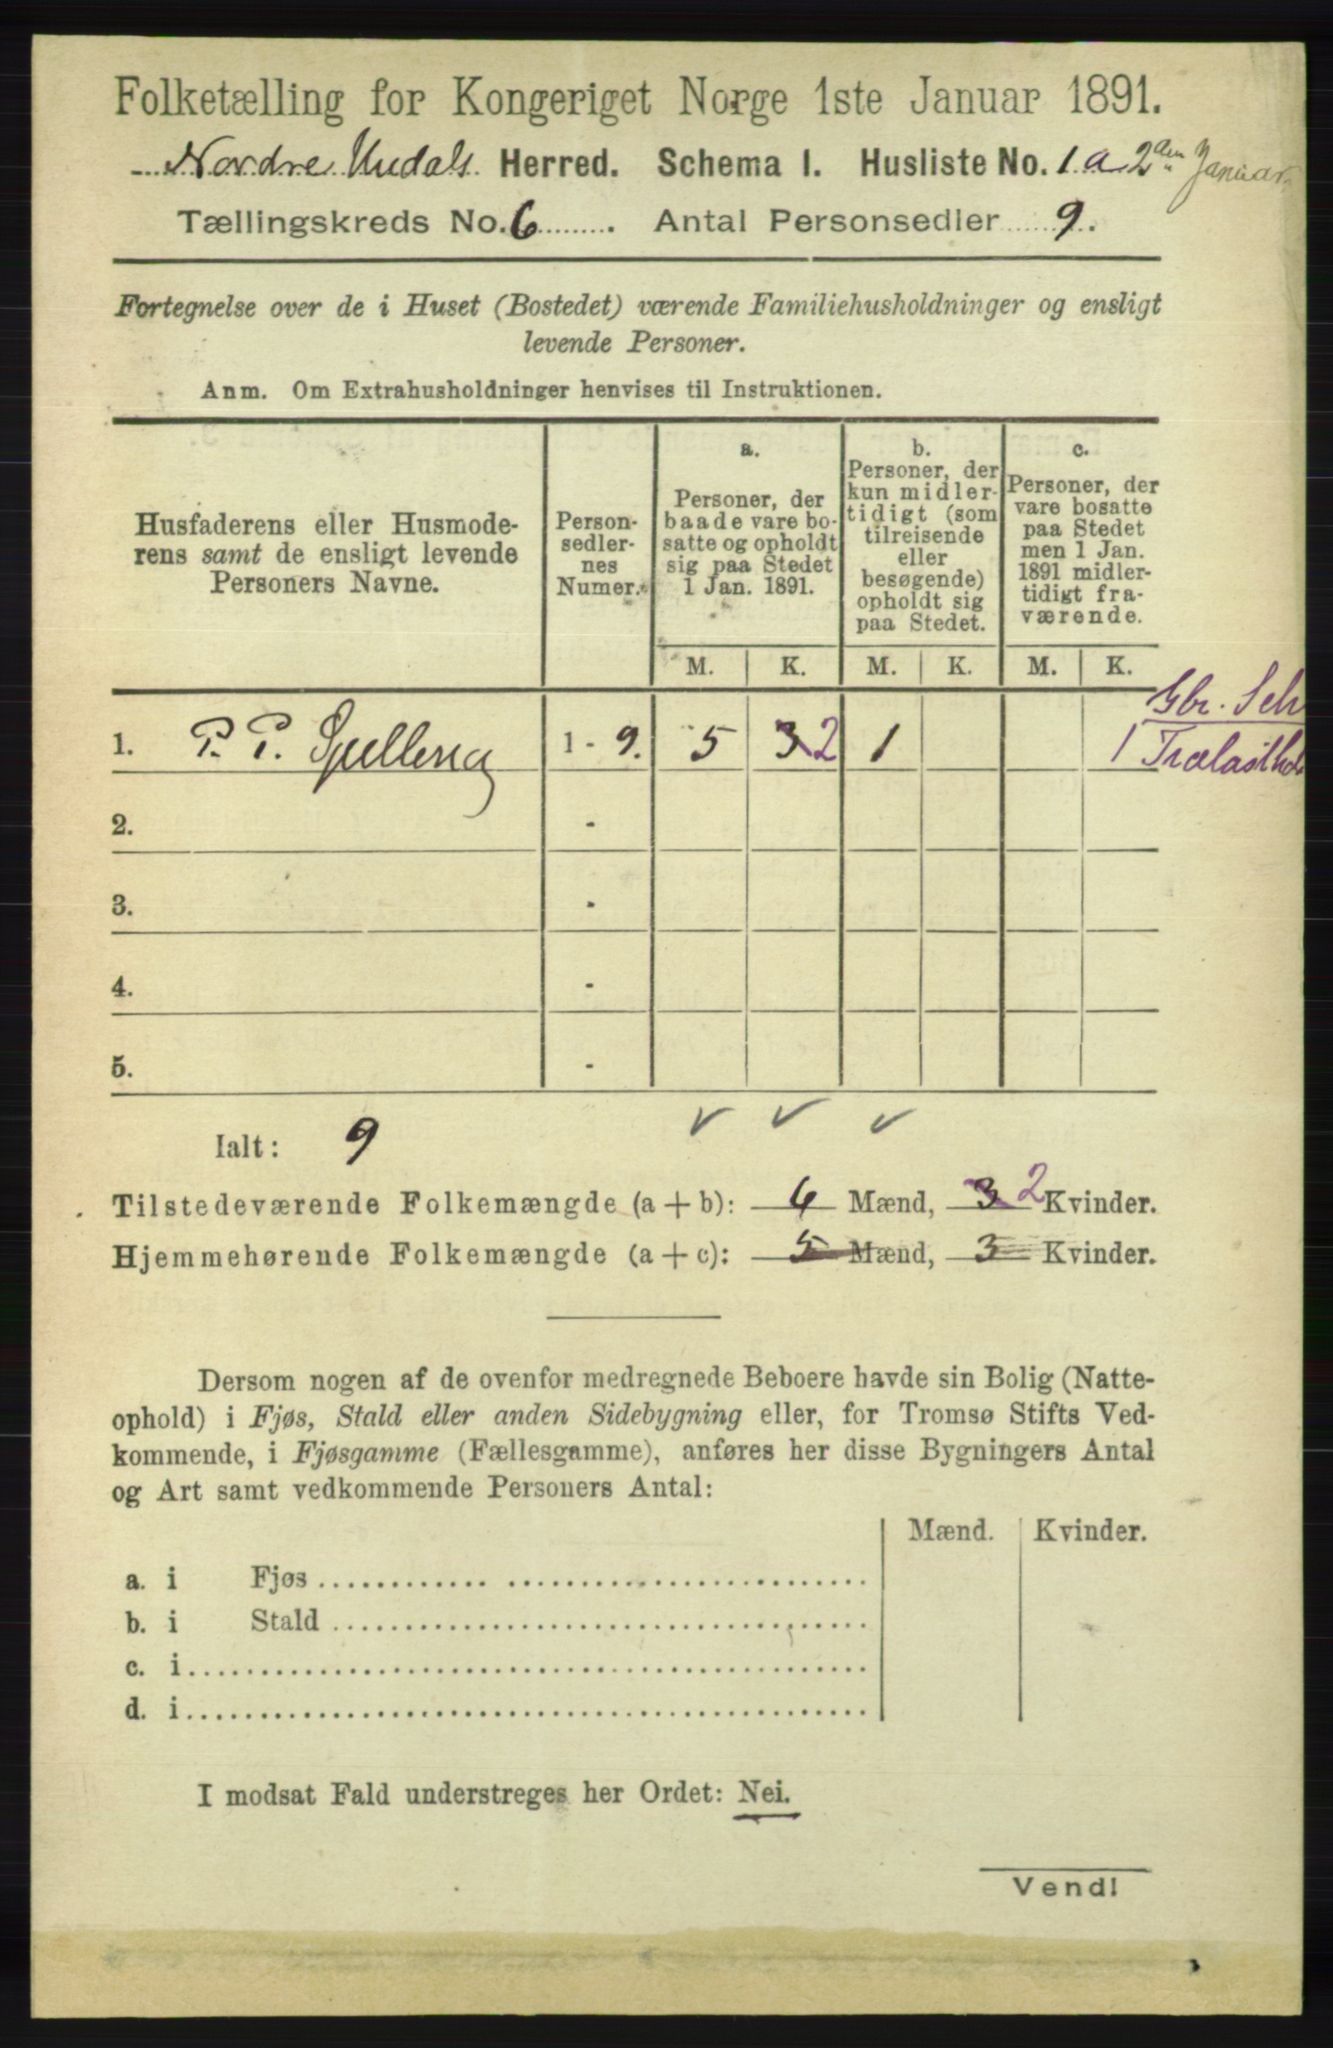 Folketælling for Kongeriget Norge 1ste Januar 1891.
Nordre Undals Herred. Schema I. Husliste No. 1 a 2den Januar
Tællingskreds No. 6 . Antal Personsedler 9.
Fortegnelse over de i Huset (Bostedet) værende Familiehusholdninger og ensligt
levende Personer.
Anm. Om Extrahusholdninger henvises til Instruktionen.
Husfaderens eller Husmode-
rens samt de ensligt levende
Personers Navne.
Person-
sedler-
nes
Numer.
a.
Personer, der
baade vare bo-
satte og opholdt
sig paa Stedet
1 Jan. 1891.
b.
Personer, der
kun midler-
tidigt (som
tilreisende
eller
besøgende)
opholdt sig
paa Stedet.
c.
Personer, der
vare bosatte
paa Stedet
men 1 Jan.
1891 midler-
tidigt fra-
værende.
M. K. M. K. M. K.
Gbr. Selv
1. P. P. 1 - 9. 5 3 2 1 1 Trælasth
2. -
3. -
4. -
5. -
Ialt: 9
Tilstedeværende Folkemængde (a + b): 6 Mænd, 3 2 Kvinder.
Hjemmehørende Folkemængde (a + c): 5 Mænd, 3 Kvinder.
Dersom nogen af de ovenfor medregnede Beboere havde sin Bolig (Natte-
ophold) i Fjøs, Stald eller anden Sidebygning eller, for Tromsø Stifts Ved-
kommende, i Fjøsgamme (Fællesgamme), anføres her disse Bygningers Antal
og Art samt vedkommende Personers Antal:
Mænd. Kvinder.
a. i Fjøs
b. i Stald
c. i
d. i
I modsat Fald understreges her Ordet: Nei.
Vend!